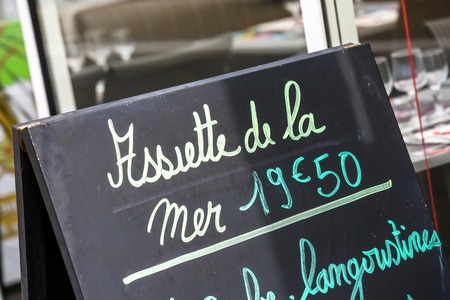 Assiette de la
mer 19€50
langoustines